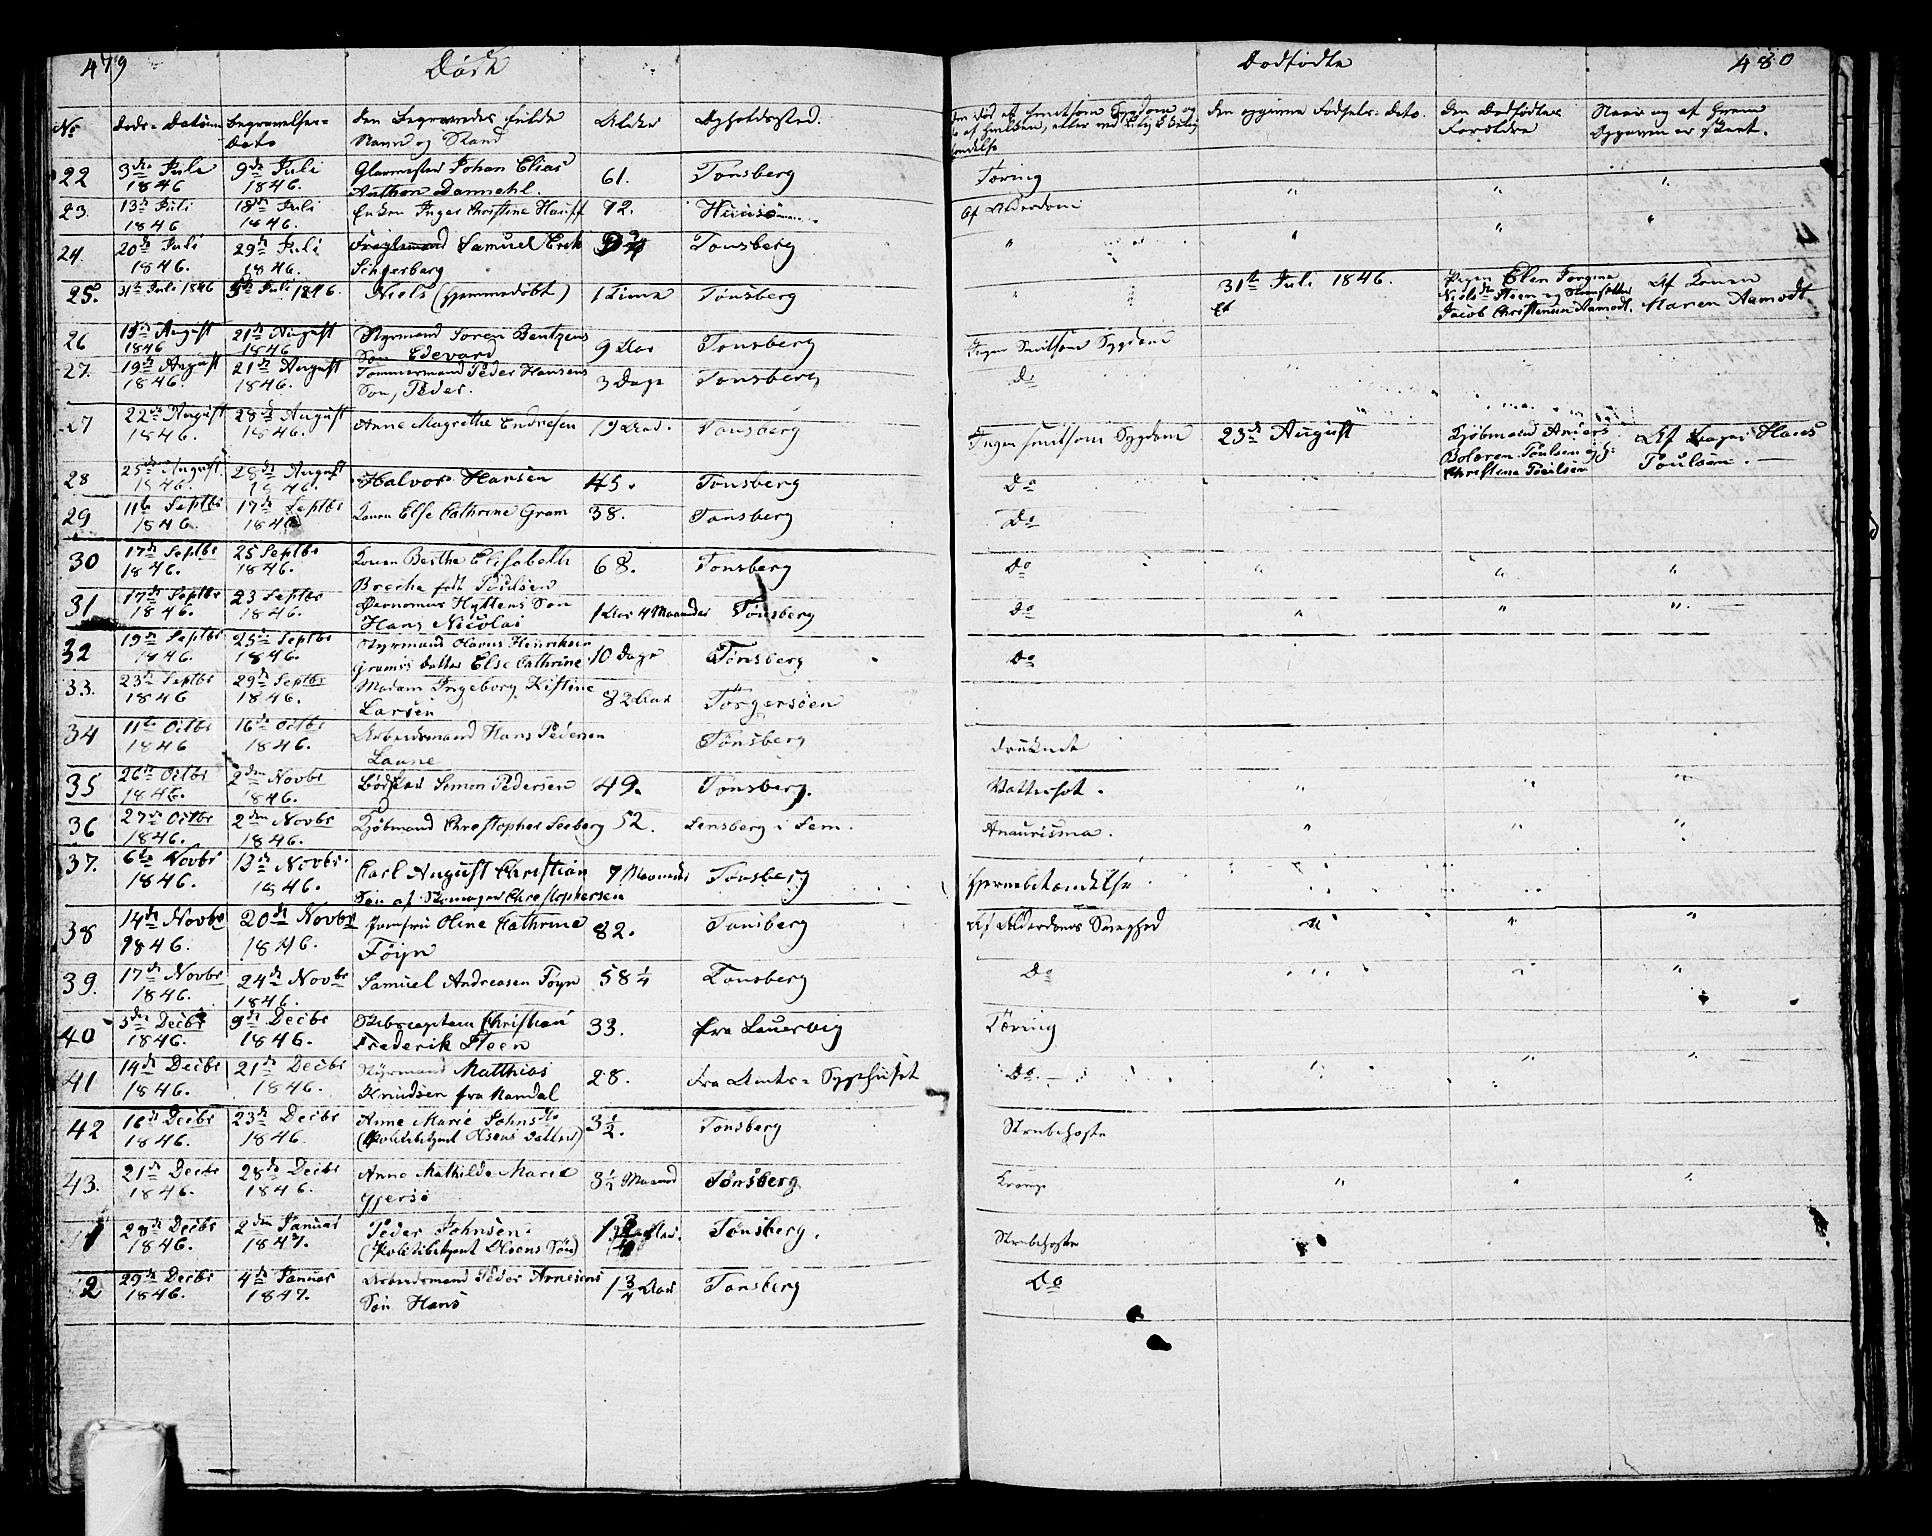 479
Døde
No
Døds-Datum
Begravelses-Dato
Den Begravedes fulde Navn og Stand
Alder
Opholdssted.
22 3die Juli 1846 9de Juli 1846. Glarmester Johan Elias Anthon Dannehl. 61. Tønsberg
23. 13de Juli 1846 18de Juli 1846. Enken Inger Christine Hauff 92.
24. 20de Juli 1846. 29de Juli 1846. Samuel Erik Tønsberg
25. 31te Juli 1846 Juli 1846. Niels (hjemmedøbt) 1 Time Tønsberg
26 August 1846 21de August 1846 Styrmand Søren Bentzens Søn Edevard 9 Aar Tønsberg
27. 19de August 1846 21de August 1846. Tømmermand Peder Hansens Søn, Peder. 3 Dage Tønsberg
27 22de August 1846. 28de August 1846. Anne Magrethe Endresen 19 Aar. Tønsberg
28 25de August 1846. 28de August 1846. Halvor Hansen 45. Tønsberg
29 11te Septbr 1846. 17de Septbr 1846 Konen Else Cathrine Gram 38. Tønsberg
30 17de Septbr 1846. 25 Septbr 1846. Konen Berthe Elisabeth født Poulsen 68. Tønsberg
31 17de Septbr 1846. 23 Septbr 1846. Hyttens Søn Hans Nicolai 1 Aar 4 Maaneder Tønsberg
32 19de Septbr 1846. 25de Septbr 1846. Styrmand Olavus Henriksen Grams Datter Else Cathrine 10 Dage Tønsberg
33. 23de Septbr 1846 29de Septbr 1846. Madam Ingeborg Kistine Larsen 82 Aar Torgersøen
34 11te Octbr 1846 16de Octbr 1846. Arbeidsmand Hans Pedersen Tønsberg
35 26de Octbr 1846. 2den Novbr 1846. Bødker Simon Pedersen 49. Tønsberg.
36 27de Octbr 1846. 2den Novbr 1846. Kjøbmand Christopher Seeberg 52. i Sem.
37. 6te Novbr 1846. 13de Novbr. 1846. Carl August Christian Søn af Skomager Christophersen 7 Maaneder Tønsberg
38 14de Novbr 1846. 20de Novbr 1846. Jomfru Oline Cathrine Føyn 82. Tønsberg
39. 17de Novbr 1846. 24de Novbr 1846. Samuel Andreasen Føyn 58 1/4 Tønsberg
40 Decbr 1846. 9de Decbr 1846. Skibscaptain Christian Frederik Steen 33. fra Laurvig
41 14de Decbr 1846. 21de Decbr 1846. Styrmand Matthias Knudsen fra Mandal 28. Fra Amts-Sygehuset
42 16de Decbr 1846. 23de Decbr 1846. Anne Marie Johnsdtr (Politibetjent Olsens Datter) 3 1/2. Tønsberg
43. 21de Decbr 1846. 28de Decbr 1846. Anne Mathilde Marie 3 1/2 Maaned Tønsberg
1 28de Decbr 1846. 2den Januar 1847. Peder Johnsen. (Politibetjent Olsens Søn) Tønsberg.
2 29de Decbr 1846. 4de Januar 1847. Arbeidsmand Peder Arnesens Søn Hans 1 3/4 Aar Tønsberg
Dødfødte
480
Den opgivne Fødsels-Dato.
Den Dødfødtes Forældre
Naar og af hvem Opgaven er skeet.
Tæring
Af Alderdom
31te Juli 1846.
Pigen Elen Jorgine
Jacob Christensen Aamodt.
Af Konen Maren Aamodt
Ingen smitsom Sygdom
Do
Ingen smitsom Sygdom
23de August
Kjøbmand Anders
Christine Poulsen
Af Hans Poulsen.
Do
Do
Do
Do
Do
Druknede
Vattersot.
Aneurisma.
Hjernebetændelse.
Af Alderdoms Svaghed
Do
Tæring
Do.
Strubehoste
Krampe
Strubehoste
Do